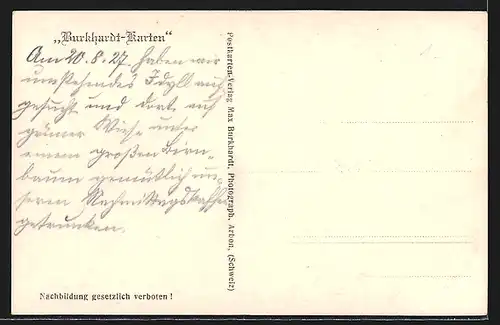 „Burkhardt-Karten“
Am 20.8.27. haben wir
umstehendes Idyll auf
gesucht und dort auf
grüner Wiese unter
einem großen Birn-
baum gemütlich un-
seren Nachmittagskaffee
getrunken.
Nachbildung gesetzlich verboten!
Postkarten-Verlag Max Burkhardt, Photograph, Arbon, (Schweiz)